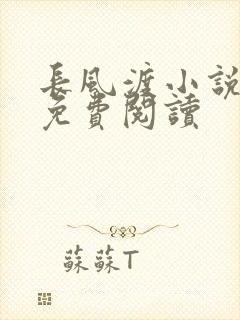 長風渡小說
免費閱讀
蘇蘇T